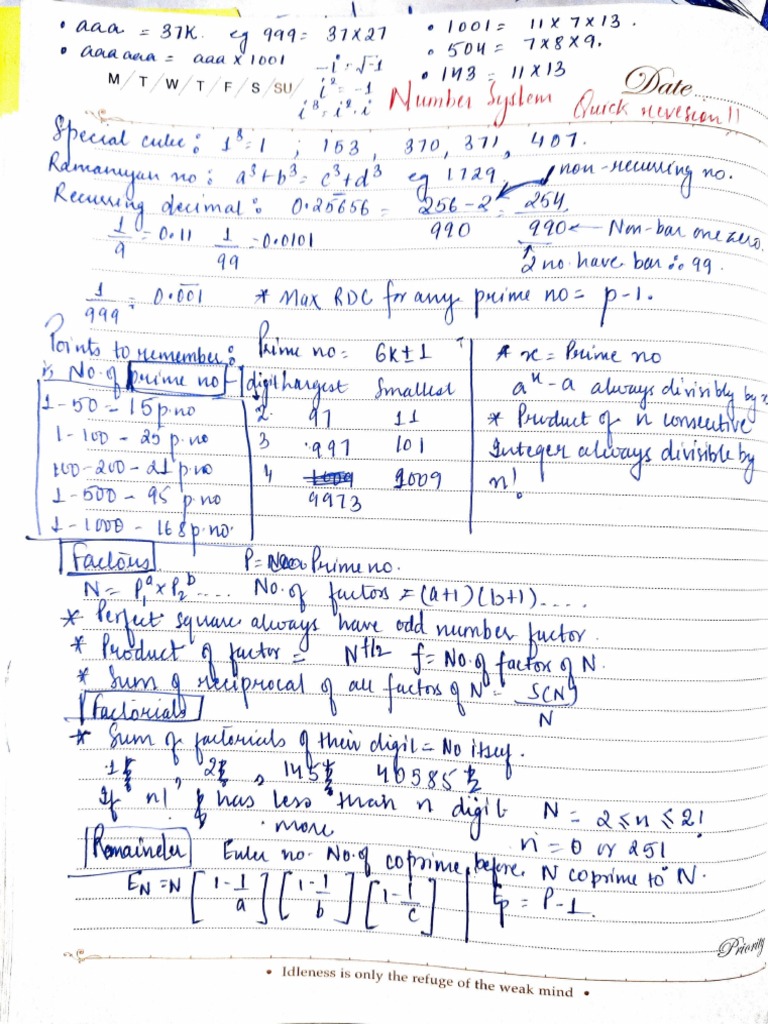 • aaa = 37K. eg 999 = 37×27
• 1001 = 11×7×13.
• aaaaaa = aaa×1001
• 504 = 7×8×9.
-i = √-1
• 143 = 11×13
M / T / W / T / F / S / SU
i² = -1
Date
i³ = i².i
Number System Quick revesion !!
Special cube: 1³=1 ; 153, 370, 371, 407.
Ramanujan no: a³+b³ = c³+d³ eg 1729.
non-recurring no.
Recurring decimal: 0.25656 = 256-2 / 990 = 254 / 990 ← Non-bar one zero.
1/9 = 0.11 1/99 = 0.0101
2 no. have bar ∴ 99.
1/999 = 0.001 * Max RDC for any prime no = p-1.
Points to remember: Prime no = 6K±1
* x = Prime no
No. of prime no
digit largest Smallest
aˣ-a always divisibly by x
1-50 = 15 p.no
2. 97 11
* Product of n consecutive
1-100 - 25 p.no
3 997 101
Integer always divisible by
100-200 - 21 p.no
4 1009
n!
1-500 - 95 p.no
9973
1-1000 - 168 p.no.
Factors P = Prime no.
N = P₁ᵃ×P₂ᵇ.... No. of factors = (a+1)(b+1)....
* Perfect square always have odd number factor.
* Product of factor = N^f/2 f = No. of factor of N.
* Sum of reciprocal of all factors of N = S(N) / N
Factorials
* Sum of factorials of their digit = No itself.
1, 2, 145 40585
If n! has less than n digit N = 2 ≤ n ≤ 21
more
n = 0 or 251
Remainder Euler no. No. of coprime before N coprime to N.
E_N = N [1-1/a] [1-1/b] [1-1/c]
Ep = P-1.
Priority
• Idleness is only the refuge of the weak mind •